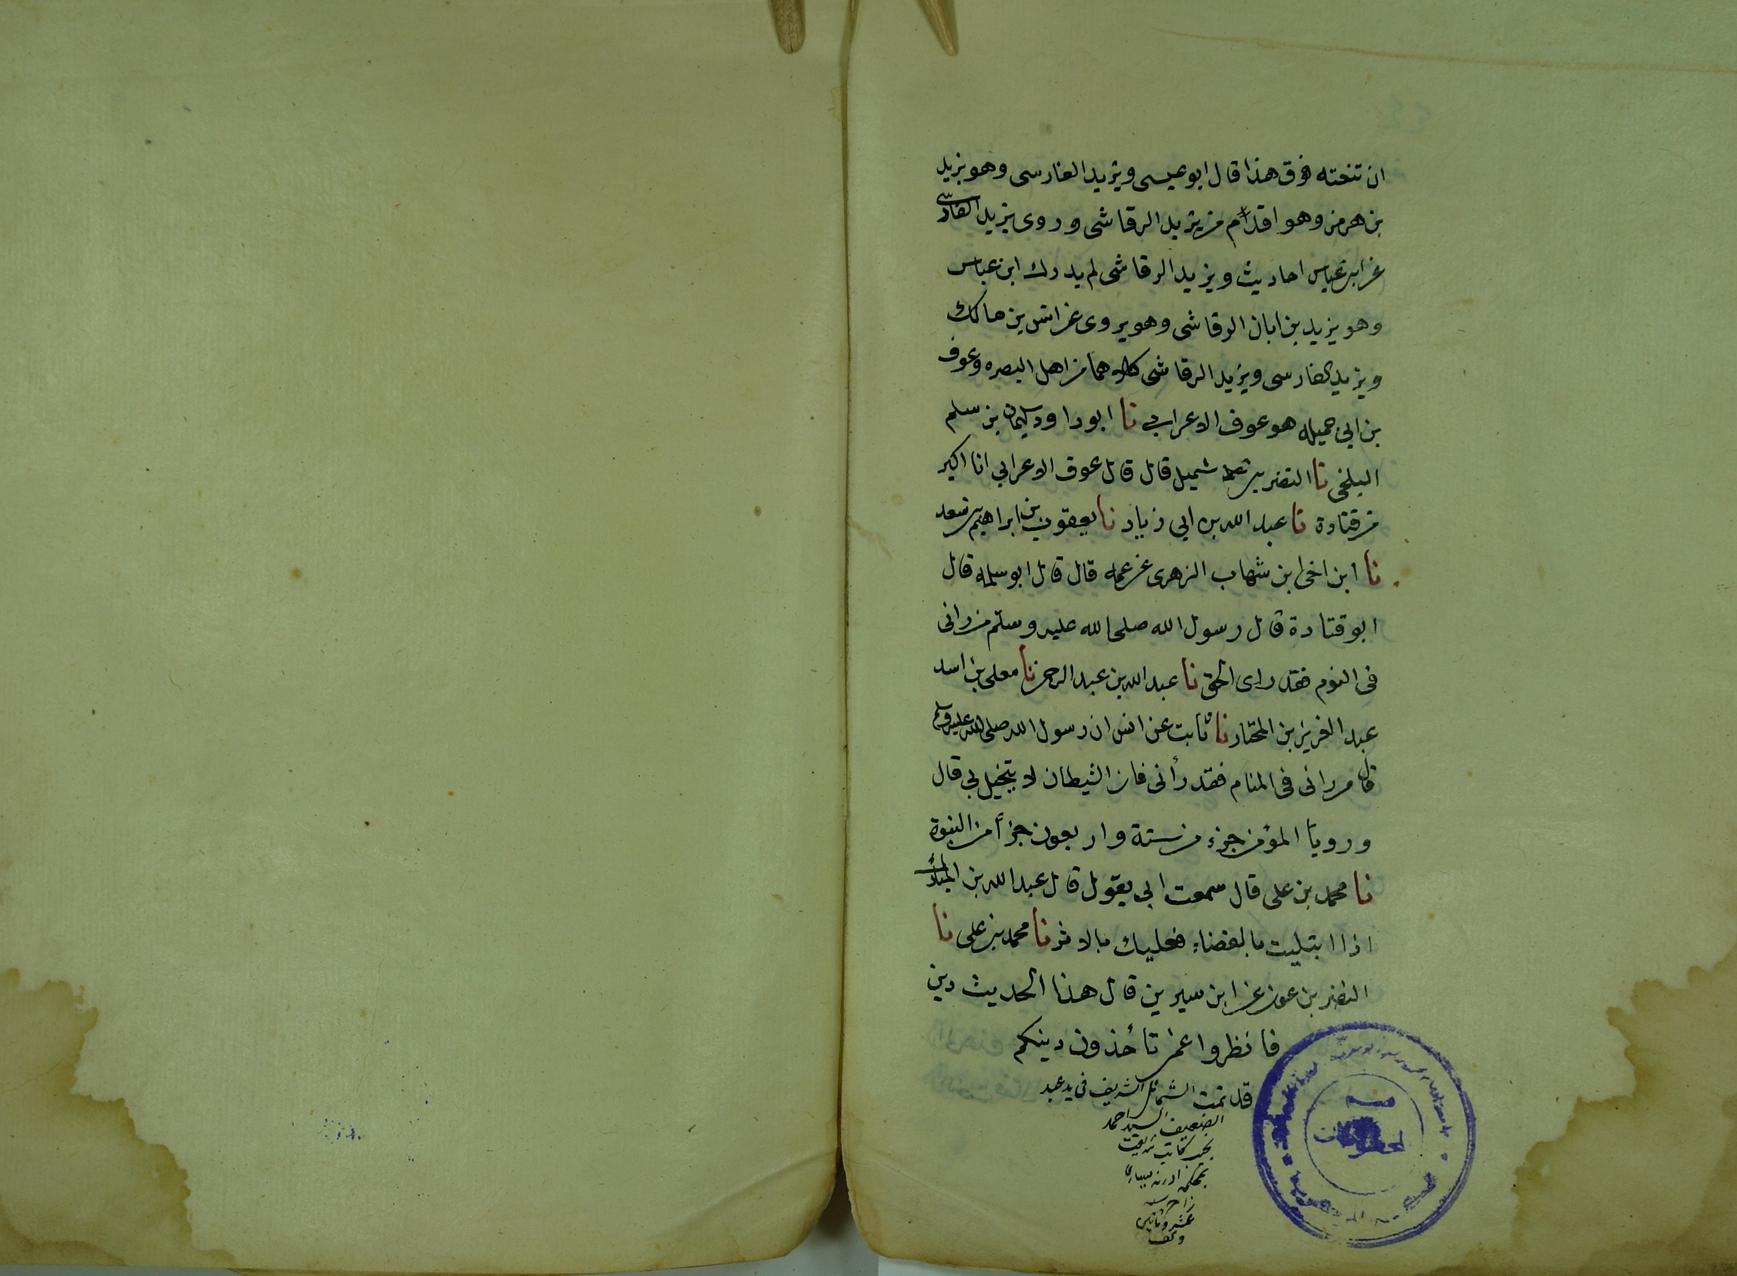 ان تنعته فوق هذا قال ابو عيسى ويزيد الفارسى وهو يزيد
بن هرمز وهو اقدم من يزيد الرقاشى وروى يزيد الفارسى
عن ابن عباس احاديث ويزيد الرقاشى لم يدرك ابن عباس
وهو يزيد بن ابان الرقاشى وهو يروى عن انس بن مالك
ويزيد الفارسى ويزيد الرقاشى كلاهما من اهل البصره وعوف
بن ابي جميله هو عوف الاعرابي نا ابو داود سليمان بن سلم
البلخى نا النضر بن شميل قال قال عوف الاعرابي انا اكبر
من قتادة نا عبد الله بن ابي زياد نا يعقوب بن ابراهيم بن سعد
نا ابن اخى ابن شهاب الزهرى عن عمه قال قال ابو سلمه قال
ابو قتادة قال رسول الله صلى الله عليه وسلم من رانى
فى النوم فقد راى الحق نا عبد الله بن عبد الرحمن نا معلى بن اسد
عبد العزيز بن المختار نا ثابت عن انس ان رسول الله صلى الله عليه وسلم
قال من رانى فى المنام فقد رأنى فان الشيطان لا يتخيل بي قال
ورويا المؤمن جزء من ستة واربعون جزأ من النبوة
نا محمد بن على قال سمعت ابي يقول قال عبد الله بن المبارك
اذا ابتليت بالقضاء فعليك بالاثر نا محمد بن على نا
النضر بن عون عن ابن سيرين قال هذا الحديث دين
فانظروا عمن تأخذون دينكم
قد تمت الشمائل الشريف فى يد عبد
الضعيف السيد احمد